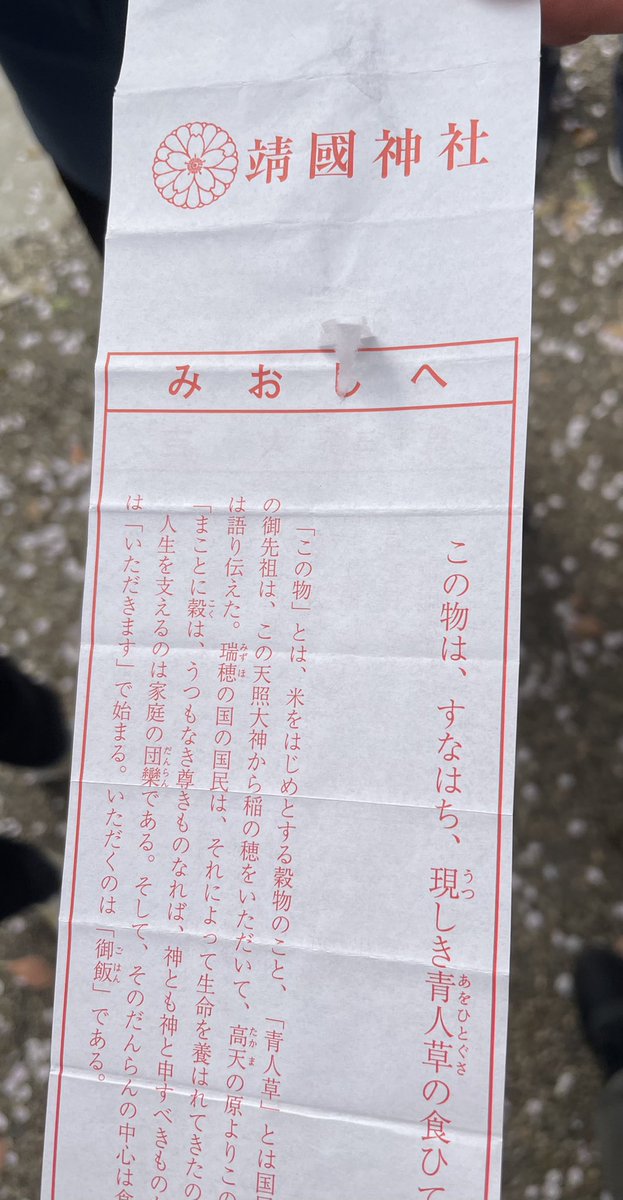 靖國神社
みおしへ
この物は、すなはち、現しき青人草の食ひて
うつ
あをひとぐさ
「この物」とは、米をはじめとする穀物のこと、「青人草」とは国
の御先祖は、この天照大神から稲の穂をいただいて、高天の原よりこの
たかま
は語り伝えた。瑞穂の国の国民は、それによって生命を養はれてきたの
みずほ
「まことに穀は、うつもなき尊きものなれば、神とも神と申すべきもの
こく
人生を支えるのは家庭の団欒である。そして、そのだんらんの中心は食
だんらん
は「いただきます」で始まる。いただくのは「御飯」である。
ごはん